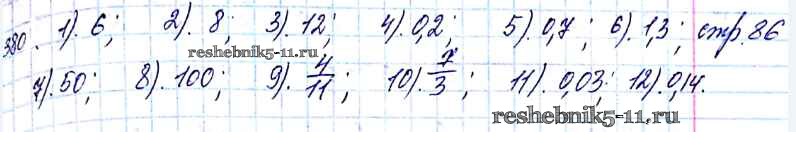 380. 1). 6; 2). 8; 3). 12; 4). 0,2; 5). 0,7; 6). 1,3; стр. 86
reshebnik5-11.ru
7). 50; 8). 100; 9). 4/11; 10). 7/3; 11). 0,03; 12). 0,14.
reshebnik5-11.ru